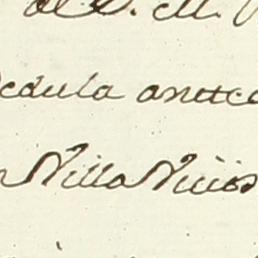 de S. M.
edula antec
Villa Viciós